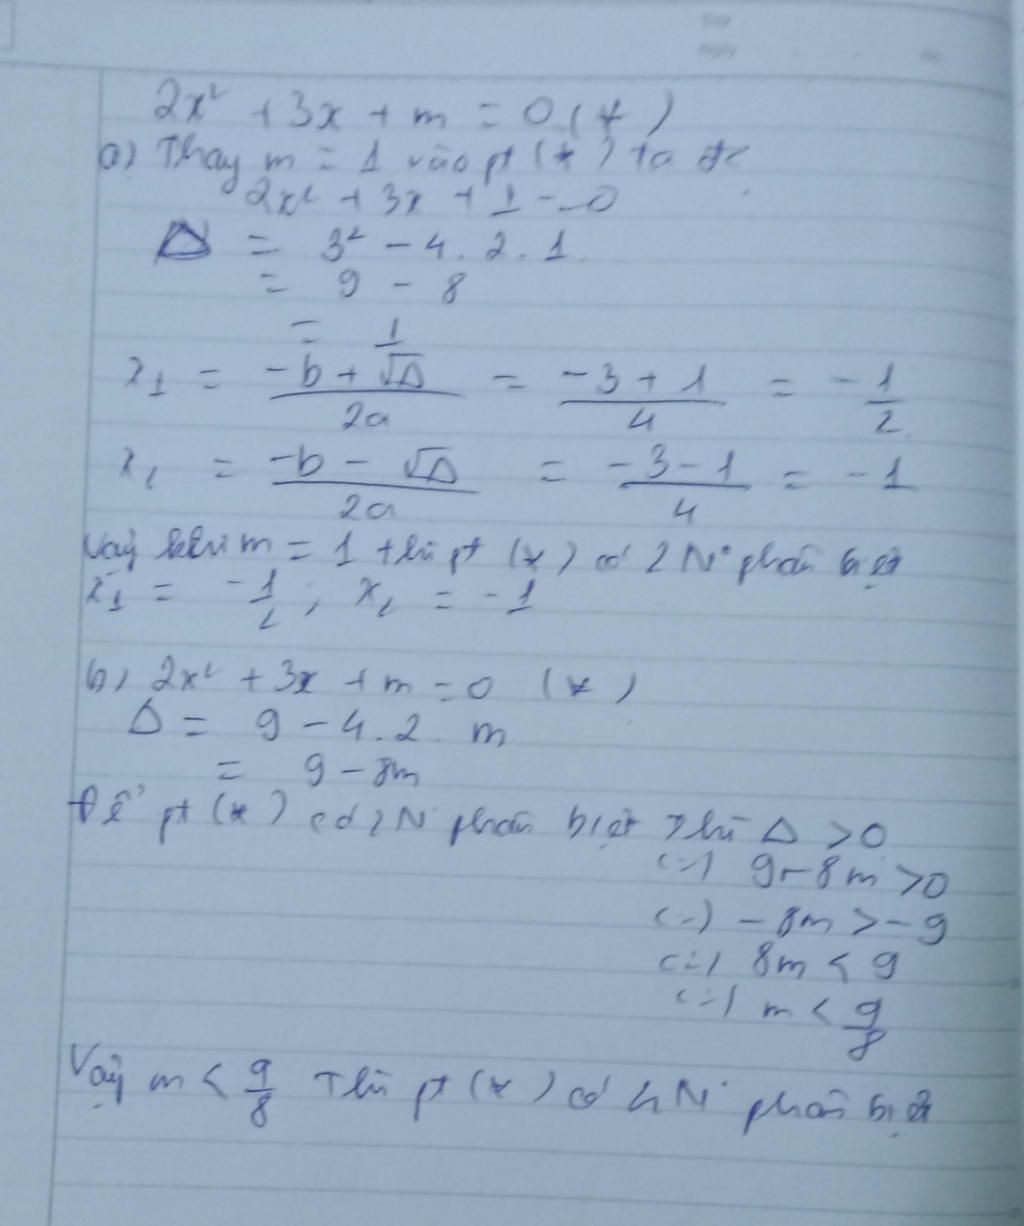 Thứ
Ngày
2x² + 3x + m = 0 (*)
a) Thay m = 1 vào pt (*) ta đc
2x² + 3x + 1 = 0
Δ = 3² - 4.2.1
= 9 - 8
= 1
x₁ = (-b + √Δ)/2a = (-3 + 1)/4 = -1/2
x₂ = (-b - √Δ)/2a = (-3 - 1)/4 = -1
Vậy khi m = 1 thì pt (*) có 2 N° phân biệt
x₁ = -1/2 ; x₂ = -1
b) 2x² + 3x + m = 0 (*)
Δ = 9 - 4.2.m
= 9 - 8m
Để pt (*) có 2 N° phân biệt thì Δ > 0
(=) 9 - 8m > 0
(=) - 8m > - 9
(=) 8m < 9
(=) m < 9/8
Vậy m < 9/8 Thì pt (*) có 2 N° phân biệt